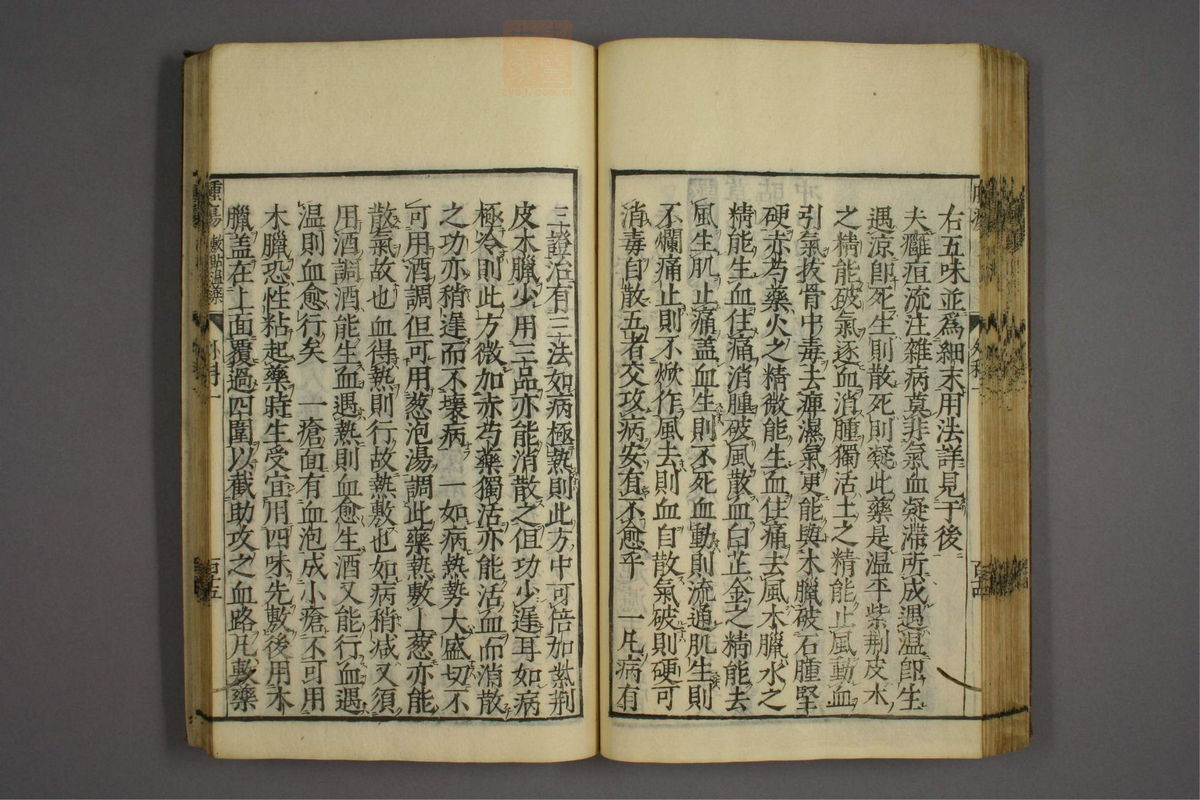 右五味並爲細末用法詳見于後
夫癰疽流注雜病莫非氣血凝滯所成遇温即生
遇涼即死生則散死則凝此藥是温平紫荆皮木
之精能破氣逐血消腫獨活土之精能止風動血
引氣拔骨中毒去痺濕氣更能與木臘破石腫堅
硬赤芍藥火之精微能生血住痛去風木臘水之
精能生血住痛消腫破風散血白芷金之精能去
風生肌止痛盖血生則不死血動則流通肌生則
不爛痛止則不焮作風去則血自散氣破則硬可
消毒自散五者交攻病安有不愈乎 一凡病有
三證治有三法如病極熱則此方中可倍加紫荆
皮木臘少用三品亦能消散之但功少遲耳如病
極冷則此方微加赤芍藥獨活亦能活血而消散
之功亦稍遲而不壞病 一如病熱勢大盛切不
可用酒調但可用葱泡湯調此藥熱敷上葱亦能
散氣故也血得熱則行故熱敷也如病稍减又須
用酒調酒能生血遇熱則血愈生酒又能行血遇
温則血愈行矣 一瘡面有血泡成小瘡不可用
木臘恐性粘起藥時生受宜用四味先敷後用木
臘盖在上面覆過四圍以截助攻之血路凡敷藥
腫瘍 敷貼温藥 外科一 百十五
百十四